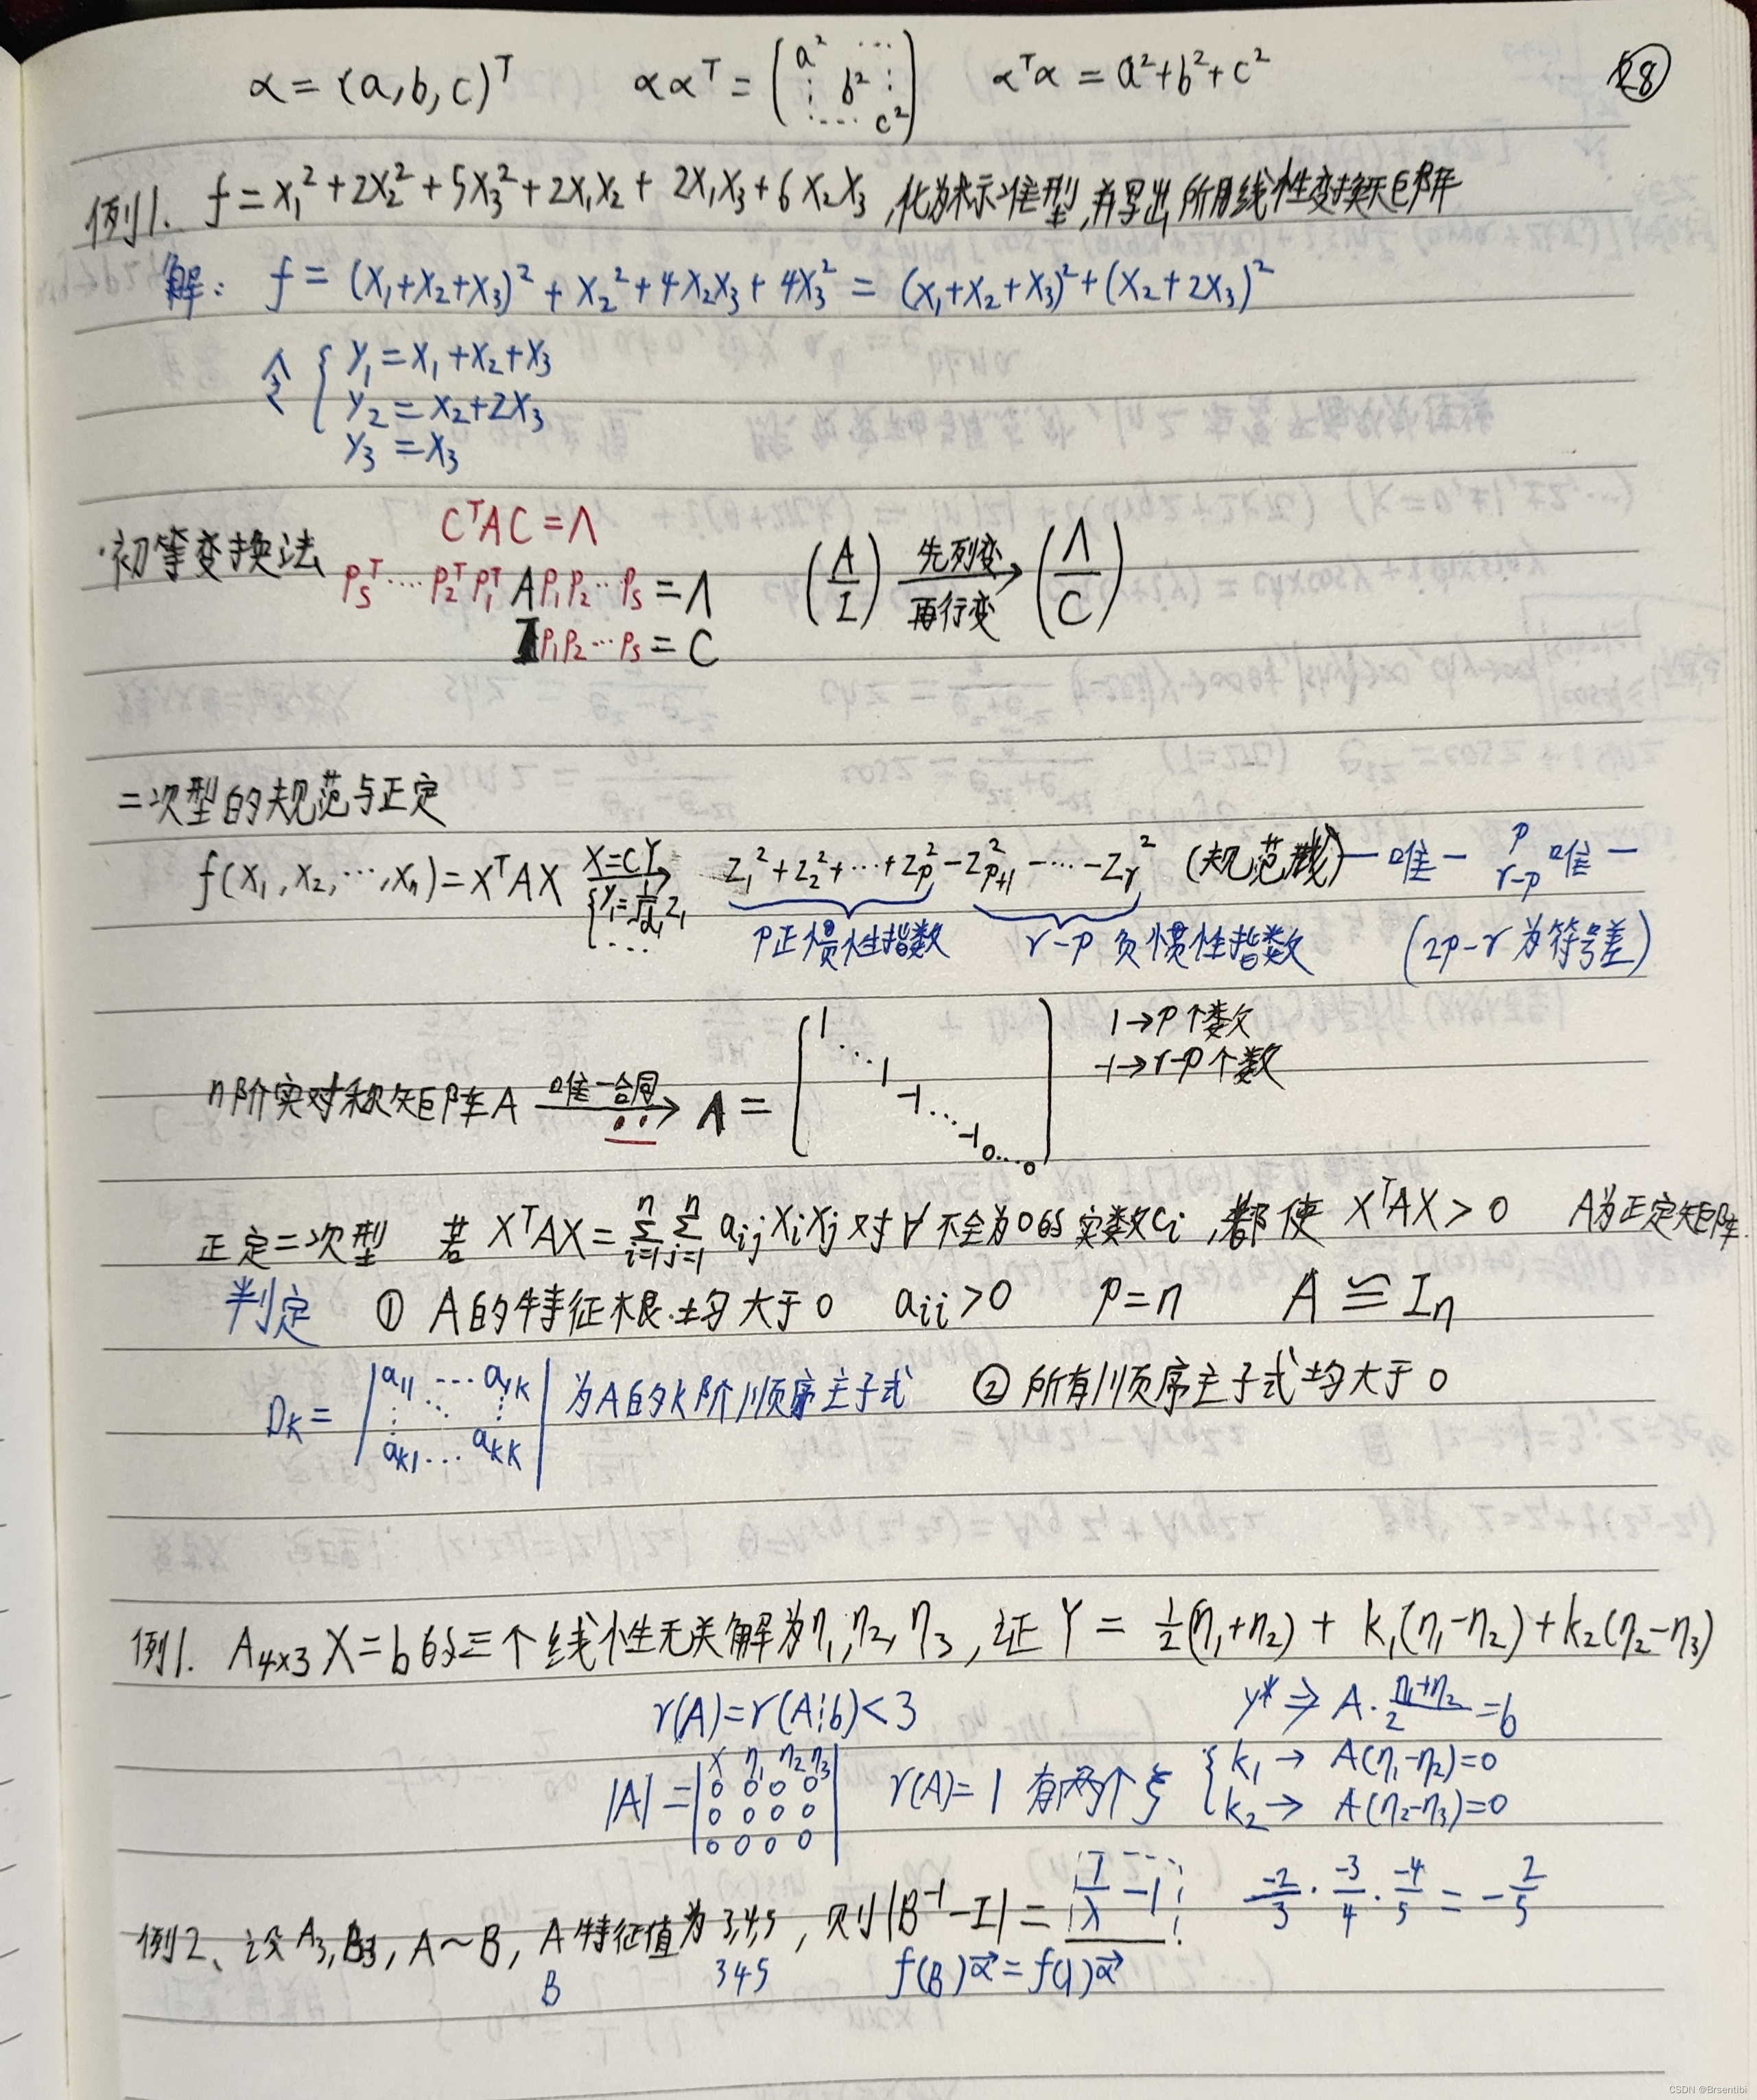 α = (a, b, c)ᵀ   ααᵀ = (a² ⋯ ⋮ b² ⋮ ⋯ c²)   αᵀα = a²+b²+c²   28
例1. f = x₁² + 2x₂² + 5x₃² + 2x₁x₂ + 2x₁x₃ + 6x₂x₃, 化为标准型, 并写出所用线性变换矩阵
解: f = (x₁+x₂+x₃)² + x₂² + 4x₂x₃ + 4x₃² = (x₁+x₂+x₃)² + (x₂+2x₃)²
令 { y₁ = x₁+x₂+x₃
y₂ = x₂+2x₃
y₃ = x₃
CᵀAC = Λ
·初等变换法 Pₛᵀ⋯P₂ᵀP₁ᵀAP₁P₂⋯Pₛ = Λ   (A/I) 先列变 再行变 → (Λ/C)
IP₁P₂⋯Pₛ = C
二次型的规范与正定
f(x₁, x₂, ⋯, xₙ) = XᵀAX X=CY → z₁²+z₂²+⋯+z_p²−z²_{p+1}−⋯−z_r² (规范型)—唯一 p r−p 唯一
{y₁=1/√d₁ z₁ ⋯
p正惯性指数   r−p 负惯性指数   (2p−r为符号差)
1→p个数
-1→r-p个数
n阶实对称矩阵A 唯一合同 → Λ = (1 ⋱ 1 -1 ⋱ -1 0 ⋯ 0)
正定二次型 若 XᵀAX = Σⁿᵢ₌₁ Σⁿⱼ₌₁ aᵢⱼxᵢxⱼ 对∀不全为0的实数cᵢ, 都使 XᵀAX > 0   A为正定矩阵.
判定 ① A的特征根均大于0   aᵢᵢ>0   p=n   A ≌ Iₙ
D_k = |a₁₁ ⋯ a₁ₖ ⋮ ⋱ ⋮ aₖ₁ ⋯ aₖₖ| 为A的k阶顺序主子式   ② 所有顺序主子式均大于0
例1. A₄ₓ₃X=b的三个线性无关解为η₁, η₂, η₃, 证 Y = ½(η₁+η₂) + k₁(η₁−η₂) + k₂(η₂−η₃)
r(A) = r(A⋮b) < 3   y* ⇒ A·(η₁+η₂)/2 = b
|A| = |x η₁ η₂ η₃ 0 0 0 0 0 0 0 0 0 0 0 0|   r(A)=1 有两个ξ { k₁ → A(η₁−η₂)=0
k₂ → A(η₂−η₃)=0
例2、设A₃, B₃, A~B, A特征值为3,4,5, 则|B⁻¹−I| = |1/λ −1|   −2/3 · −3/4 · −4/5 = −2/5
B   3 4 5   f(B)α⃗ = f(λ)α⃗
CSDN @Brsentibi